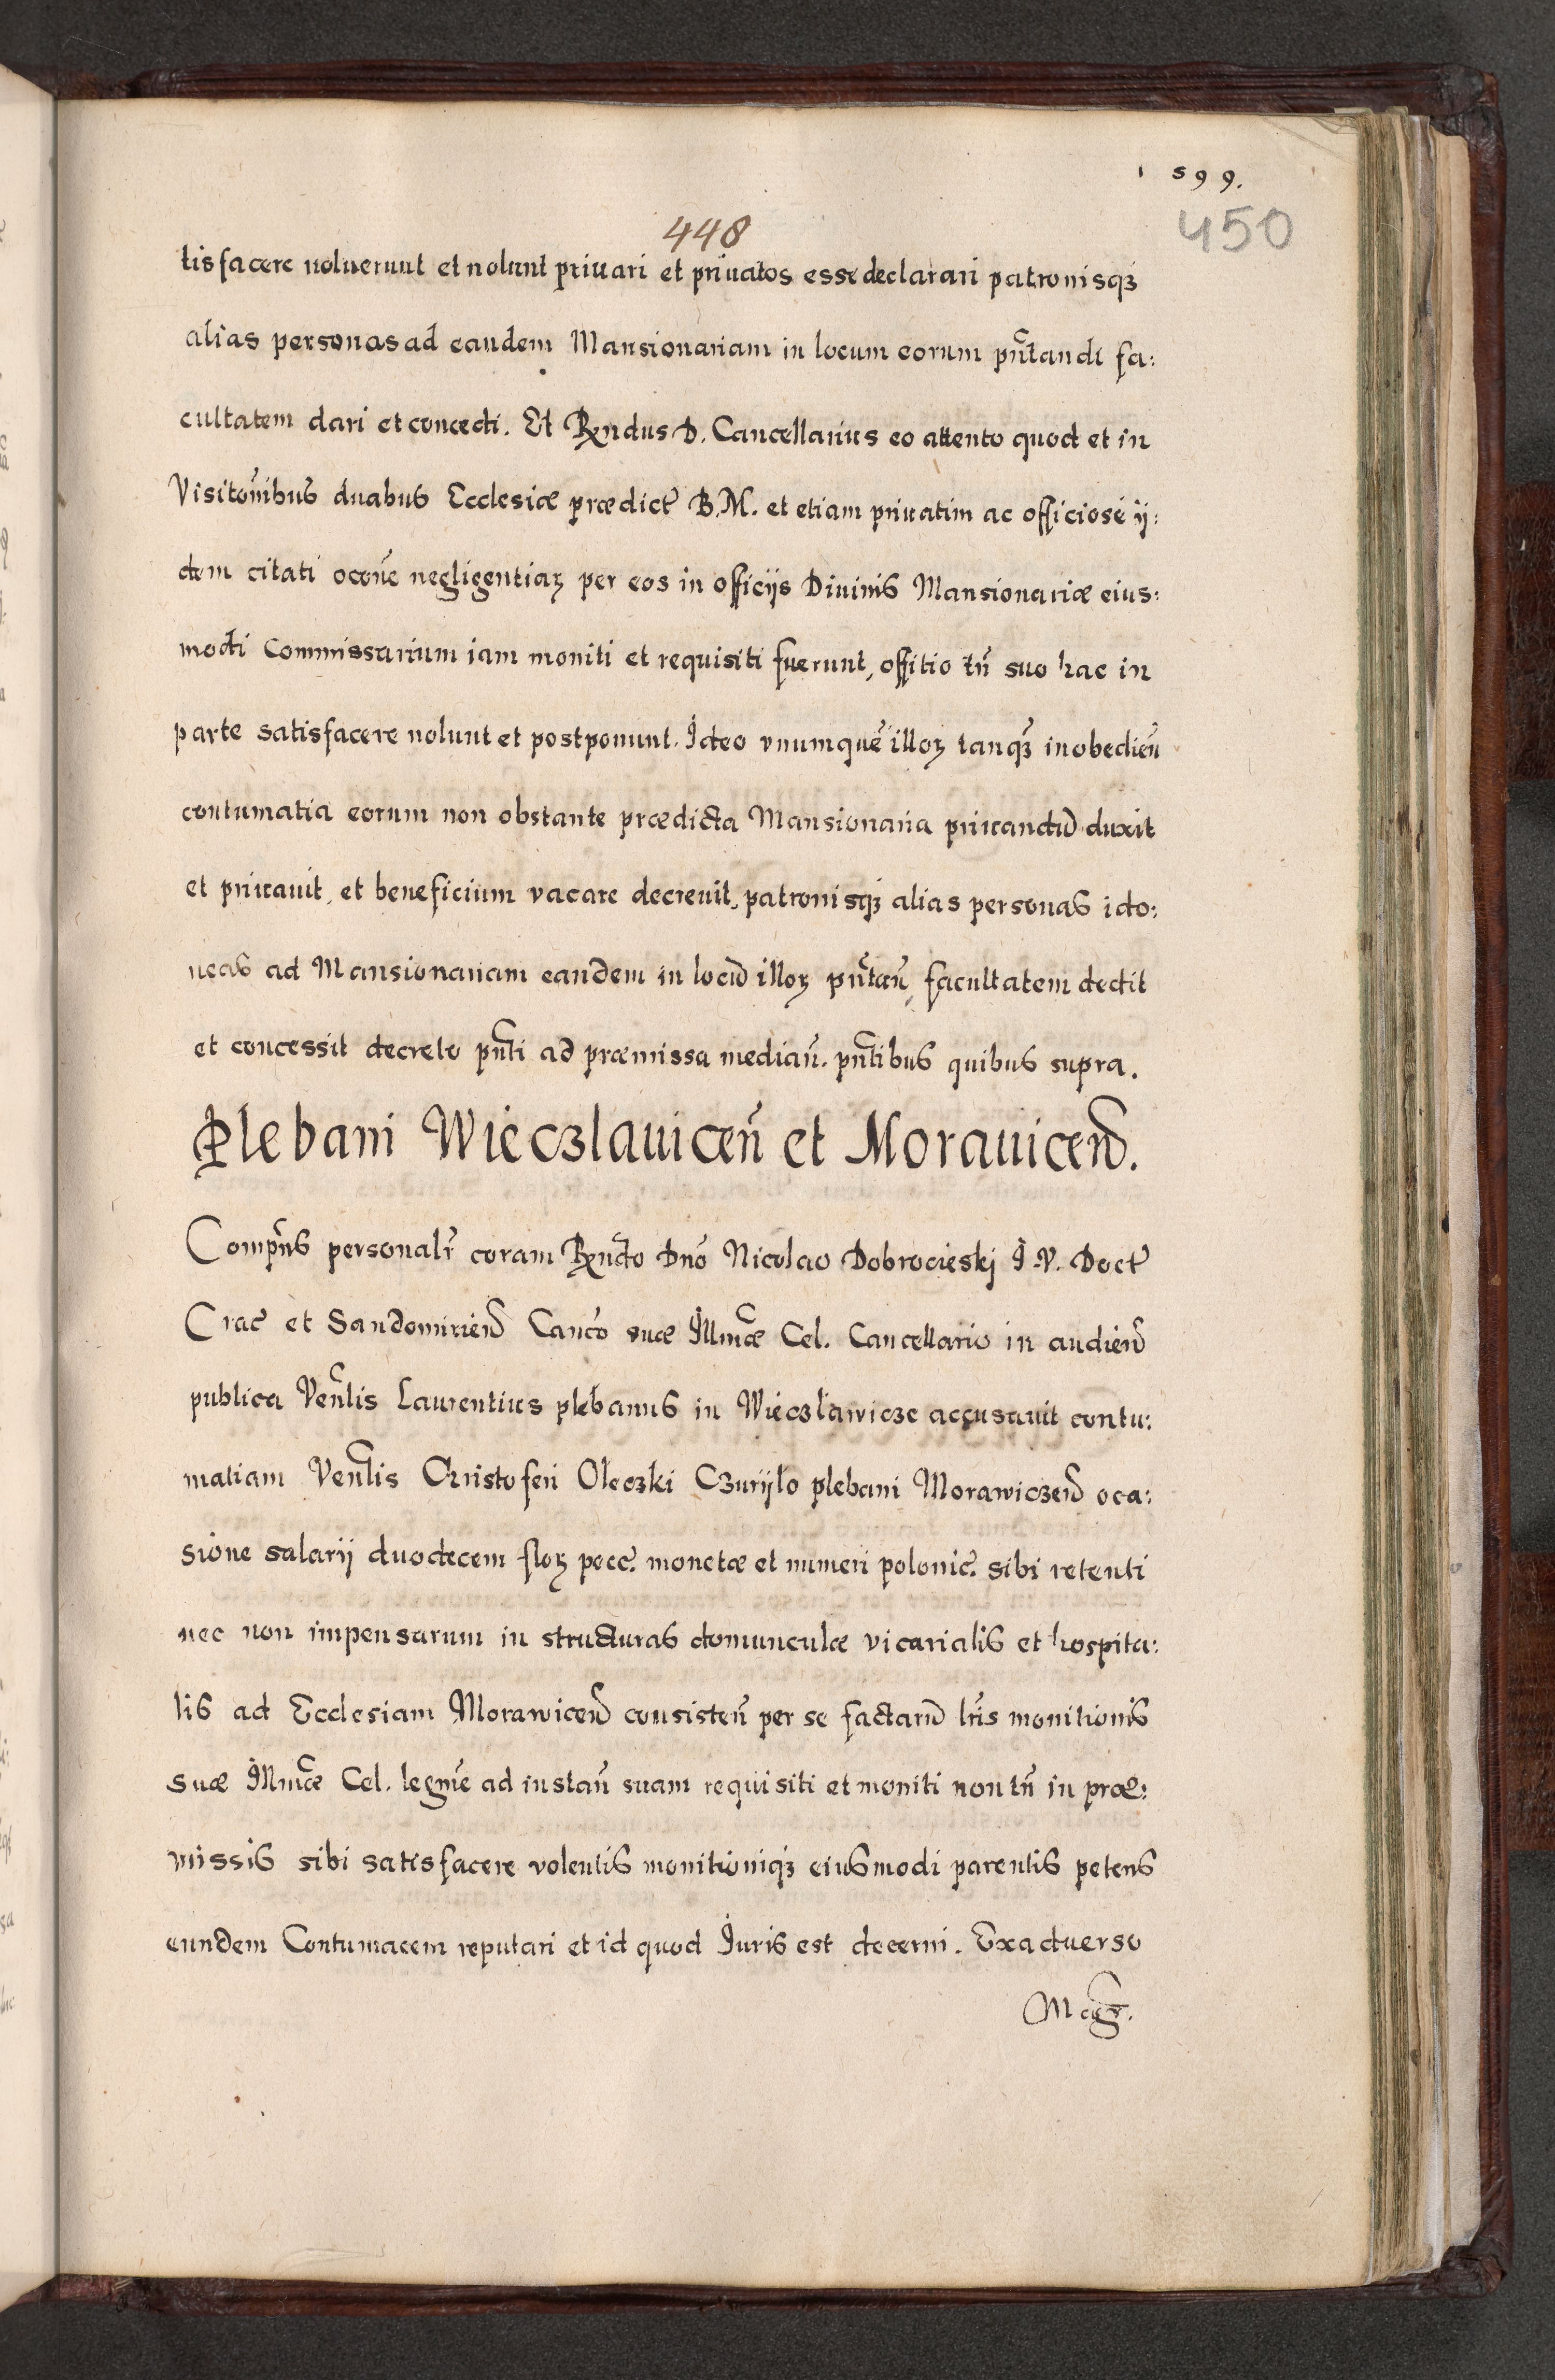 1599.
450
448
tisfacere noluerunt et nolunt priuari et priuatos esse declarari patronisqꝫ
alias personas ad eandem Mansionariam in locum eorum pñtandi fa:
cultatem dari et concedi. Et Rndus D. Cancellarius eo attento quod et in
Visitõnibus duabus Ecclesiæ prædict̃ B.M. et etiam priuatim ac officiosè ij:
dem citati occõne negligentiaꝝ per eos in officijs Diuinis Mansionariæ eius:
modi Commissarium iam moniti et requisiti fuerunt, offitio tñ suo hac in
parte satisfacere nolunt et postponunt. Ideo vnumquẽ illoꝝ tanqꝫ inobedieñ
contumatia eorum non obstante prædicta Mansionaria priuandũ duxit
et priuauit, et beneficium vacare decreuit, patronisqꝫ alias personas ido:
neas ad Mansionariam eandem in locũ illoꝝ pñtañ, facultatem dedit
et concessit decreto pñti ad præmissa mediañ. pñtibus quibus supra.
Plebani Wieczlauiceñ et Morauiceñ.
Comp̃ns personalr̃ coram Rndo Dnõ Nicolao Dobrocieskj I.V. Doct̃
Crac̃ et Sandomirieñ Canco suæ Illmæ Cel. Cancellario in audieñ
publica Veñlis Laurentius plebanus in Wieczławicze accusauit contu:
matiam Veñlis Christoferi Oleczki Czuryło plebani Morawiczeñ oca:
sione salarij duodecem floꝝ pecc̃. monetæ et numeri polonic̃. sibi retenti
nec non impensarum in structuras domunculæ vicarialis et hospita:
lis ad Ecclesiam Morawiceñ consisteñ per se factarũ lr̃is monitionis
suæ Illmæ Cel. legmẽ ad instañ suam requisiti et moniti non tñ in præ:
missis sibi satisfacere volentis monitioniqꝫ eiusmodi parentis petens
eundem Contumacem reputari et id quod Iuris est decerni. Ex aduerso
Magr.